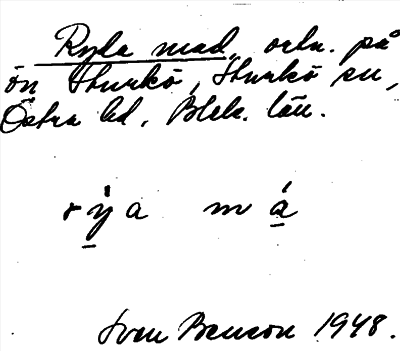 Ryda mad, ortn. på
ön Sturkö, Sturkö sn,
Östra hd, Blek. län.
r ý a m á
Sven Benson 1948.